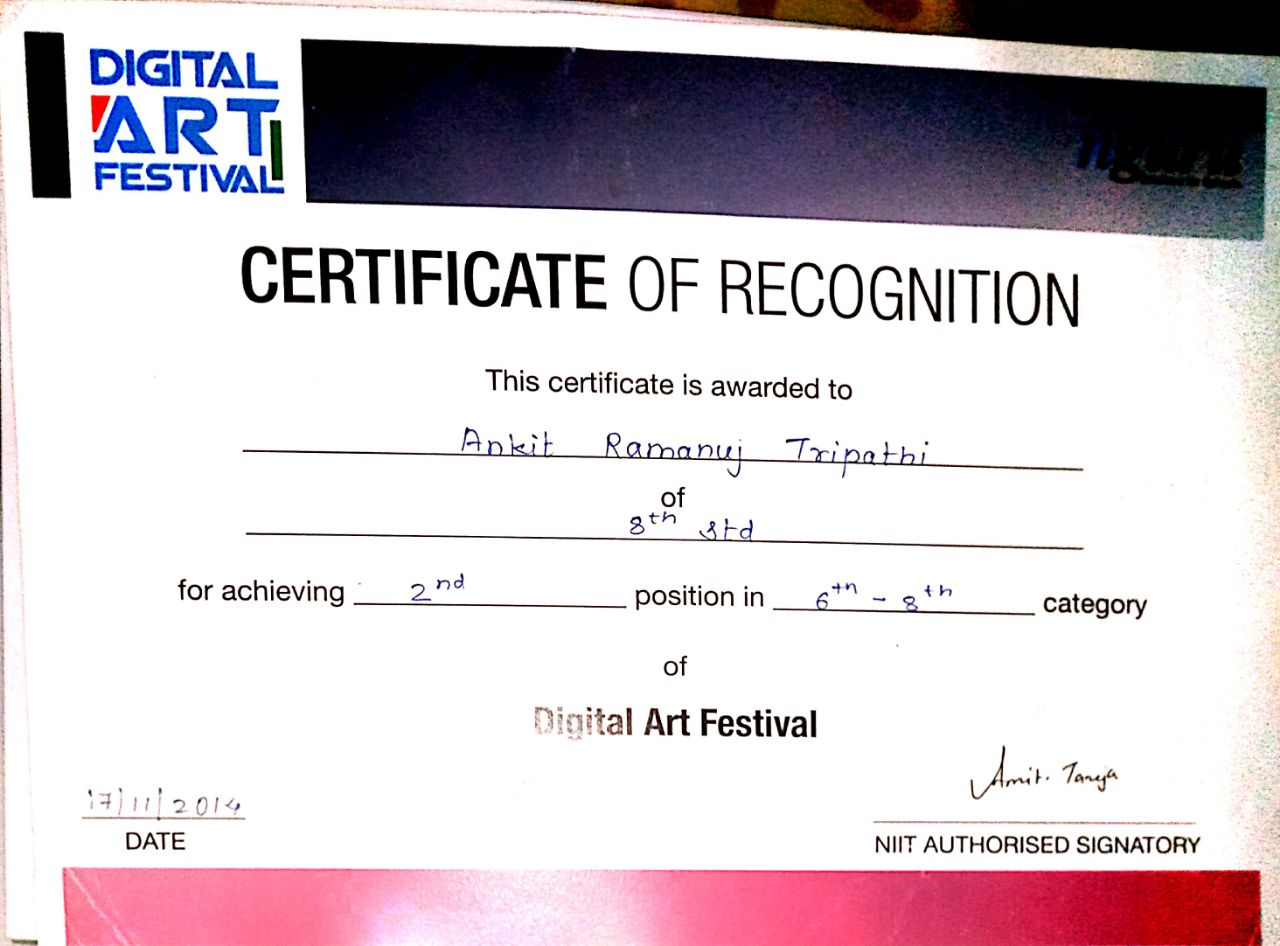 DIGITAL
ART
FESTIVAL
nguru
CERTIFICATE OF RECOGNITION
This certificate is awarded to
Ankit Ramanuj Tripathi
of
8th std
for achieving 2nd position in 6th - 8th category
of
Digital Art Festival
Amit. Taneja
17/11/2014
DATE
NIIT AUTHORISED SIGNATORY